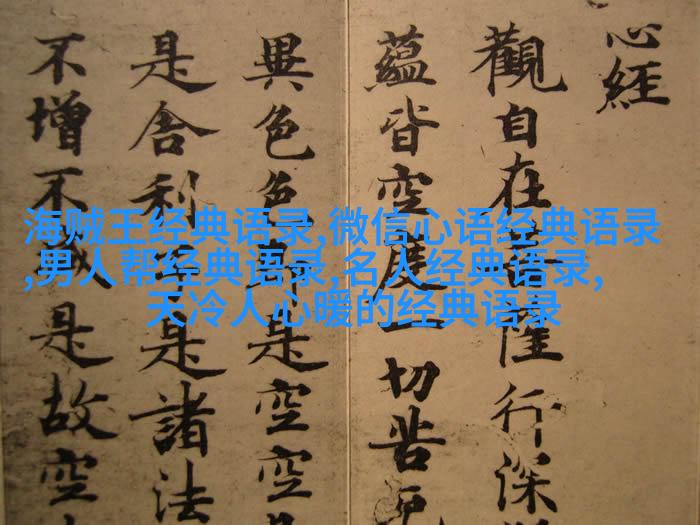 心經
觀自在菩薩行深
蘊皆空度一切苦厄
異色色即是空空
是舍利子是諸法
不增不減是故空
海贼王经典语录,微信心语经典语录
,男人帮经典语录,名人经典语录,
天冷人心暖的经典语录